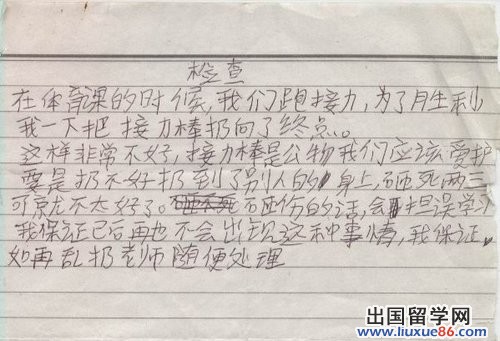 检查
在体育课的时候,我们跑接力,为了胜利
我一下把接力棒扔向了终点。
这样非常不好,接力棒是公物我们应该爱护
要是扔不好扔到了别人的身上,砸死两三
可就不太好了。砸伤的话,会担误学习
我保证已后再也不会出现这种事情,我保证,
如再乱扔老师随便处理
出国留学网
www.liuxue86.com